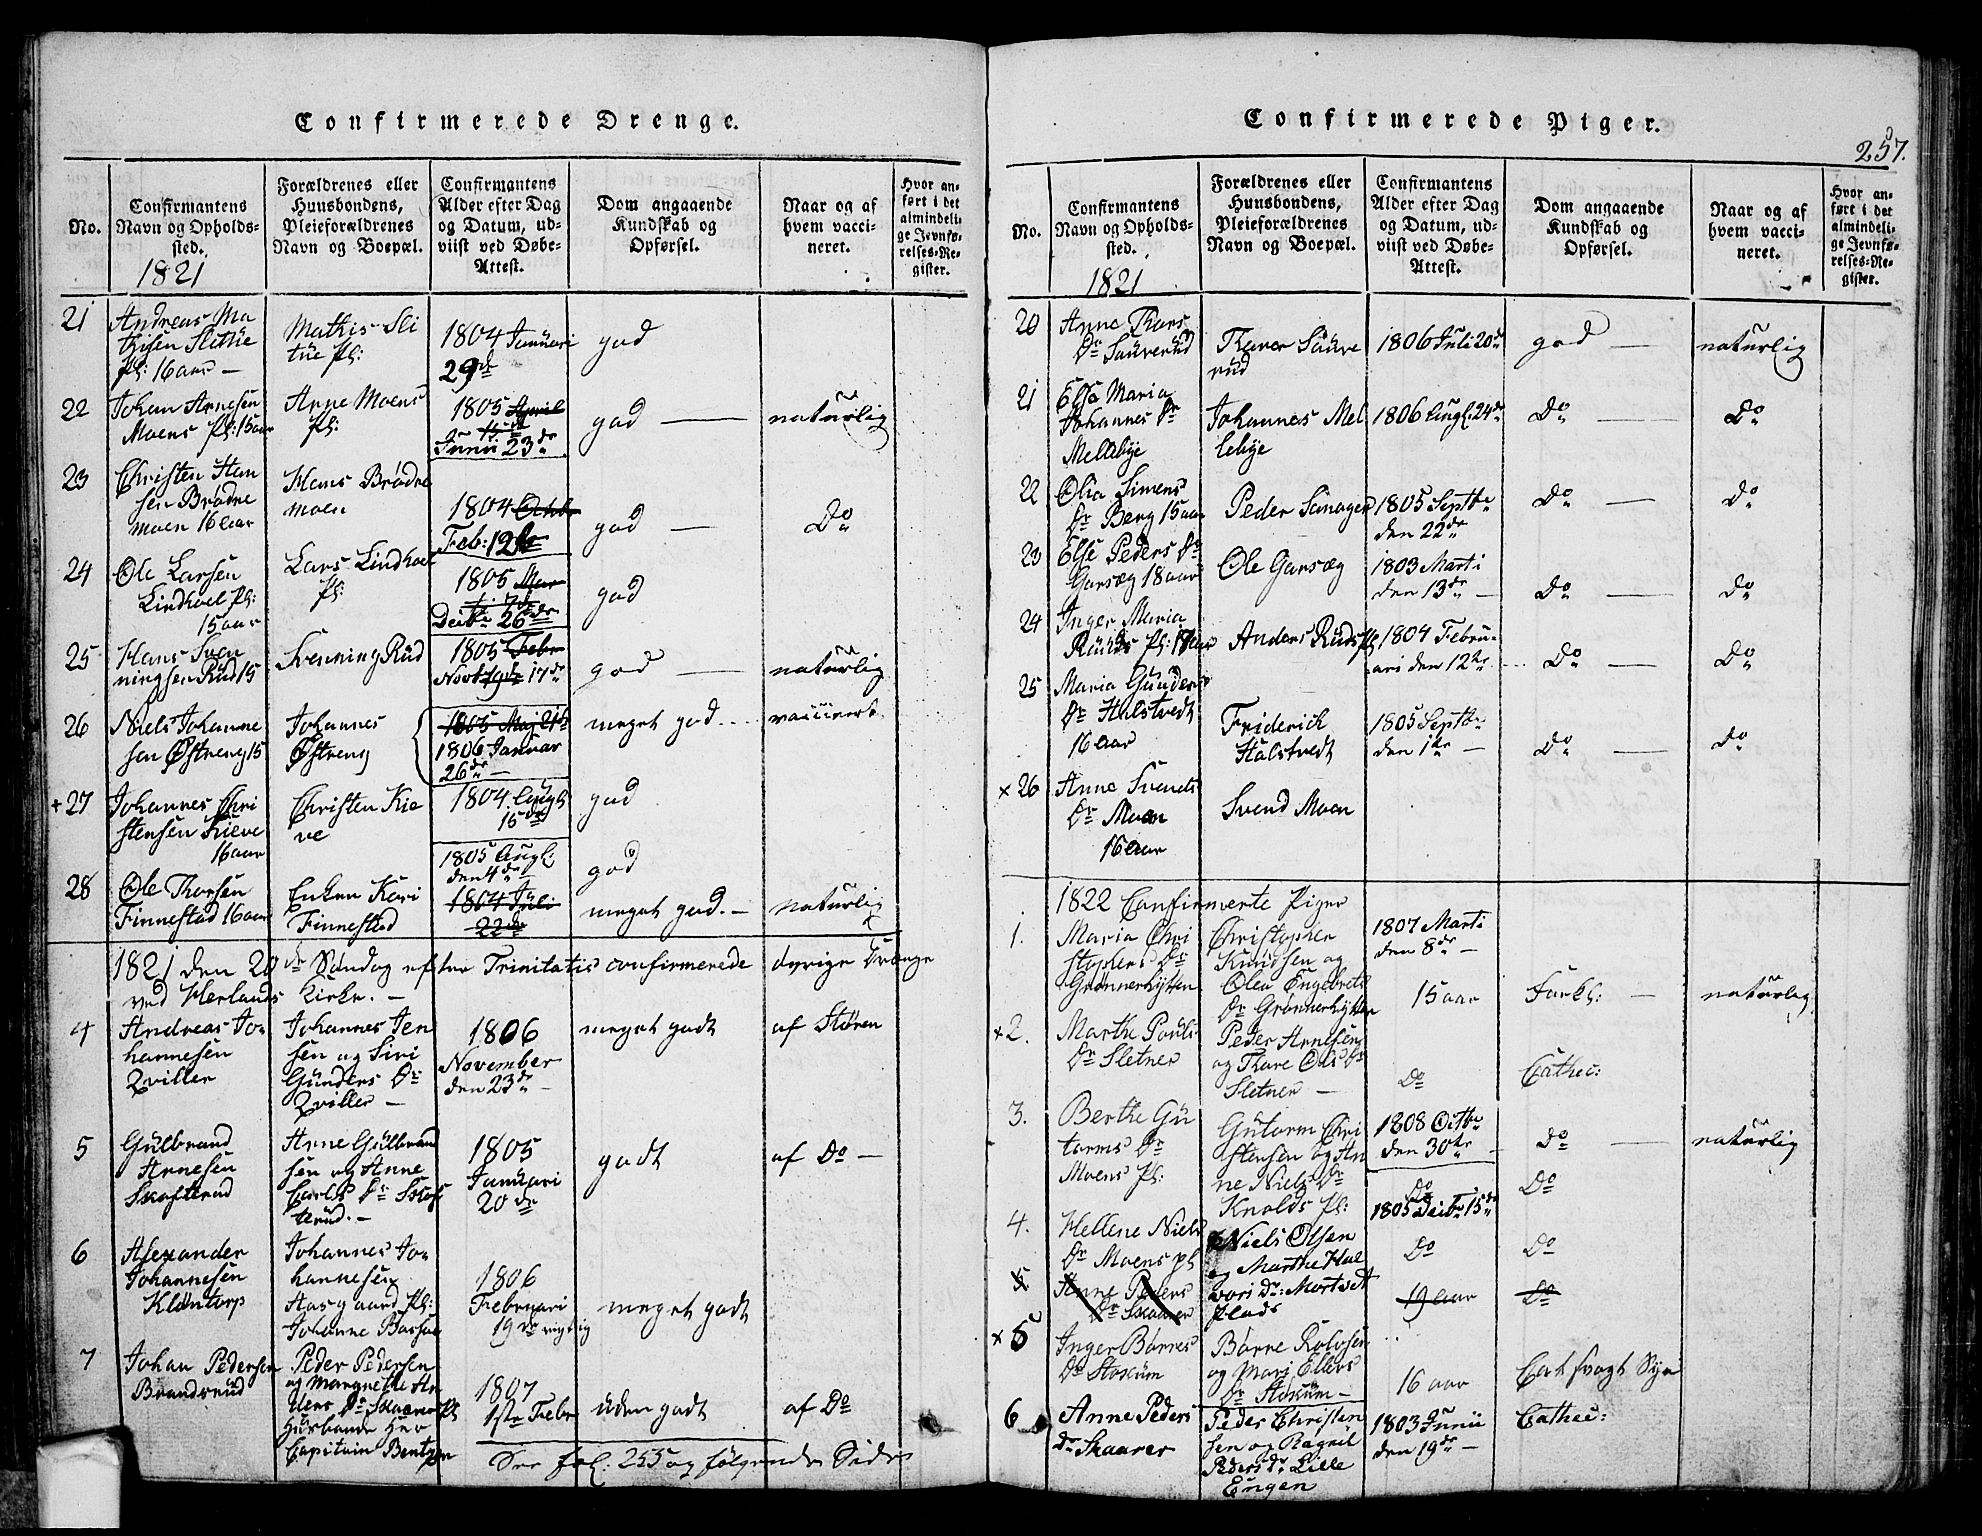 Confirmerede Drenge.
No.
Confirmantens Navn og Opholdssted.
1821
Forældrenes eller Huusbondens, Pleieforældrenes Navn og Boepæl.
Confirmantens Alder efter Dag og Datum, udviist ved Døbe-Attest.
Dom angaaende Kundskab og Opførsel.
Naar og af hvem vaccineret.
Hvor anført i det almindelige Jevnførelses-Register.
21
Andreas Ma
thisen Slitüe
Pl: 16 aar —
Mathis Sli
tüe Pl:
1804 Januari
29de
god
22
Johan Arnesen
Moens Pl: 15 aar
Arne Moens
Pl:
1805 April
15de
Junii 23de
god —
naturlig
23
Christen Han
sen Brødre
moen 16 aar
Hans Brødre
moen
1804 Octbr
Feb: 12te
god —
Do
24
Ole Larsen
Lindhoel Pl:
15 aar
Lars Lindhoel
Pl:
1805 Mar
ti 7de
Decbr 26de
god
25
Hans Sven
ningsen Rüd 15
Svenning Rüd
1805 Febr
Novbr 19de 17de
god —
naturlig
26
Niels Johanne
sen Østreng 15
Johannes
Østreng
1805 Maj 21de
1806 Januar
26de —
meget god
vaccinert
+ 27
Johannes Chri
stensen Kieve
16 aar
Christen Kie
ve
1804 Augt
15de
god
1805 Augl:
den 4de
god
28
Ole Thorsen
Finnestad 16 aar
Enken Kari
Finnestad
1804 Juli
22de
meget god. —
naturlig
1821 den 20de Søndag efter Trinitatis confirmerede øvrige Drenge
ved Herlands Kirke. —
4
Andreas Jo-
hannesen
Qviller
Johannes Jen
sen og Siri
Günders Dr
Qviller —
1806
November
den 23de —
meget godt
af Støren
5
Gülbrand
Arnesen
Skofterud
Arne Gülbrand
sen og Anne
Carls Dr Skof
terud. —
1805
Januari
20de
godt
af Do —
6
Alexander
Johannesen
Kløntorp
Johannes Jo-
hannesen
Aasgaard Pl:
Johanne
1806
Februari
19de rigtig
meget godt
7
Johan Pedersen
Brandsrud
Peder Pedersen
og Margrethe An
ders Dr Skaarer Pl
Husbonde Her
Capitain Bentzen
1807
1ste Febr
üden godt
af Do
See fol. 255 og følgende Sider
Confirmerede Piger.
257.
No.
Confirmantens Navn og Opholdssted.
1821
Forældrenes eller Huusbondens, Pleieforældrenes Navn og Boepæl.
Confirmantens Alder efter Dag og Datum, udviist ved Døbe-Attest.
Dom angaaende Kundskab og Opførsel.
Naar og af hvem vaccineret.
Hvor anført i det almindelige Jevnførelses-Register.
20
Anne Thors
Dr Saüverüd
Thorer Saüve
rüd
1806 Juli 20de
god —
naturlig
21
Else Maria
Johannes Dr
Mellebye
Johannes Mel
lebye
1806 Augl: 24de
Do —
Do
22
Olia Simens
Dr Berg 15 aar
Peder Sanager
1805 Septbr
den 22de
Do —
Do
23
Else Peders Dr
Garsæg 18 aar
Ole Garsæg
1803 Marti
den 13de —
Do —
Do
24
Inger Maria
Rüds Pl: 17 aar
Anders Rüds Pl
1804 Febru-
ari den 12te
Do —
Do
25
Maria Günders
Dr Halstvedt
16 aar
Friderich
Halstvedt
1805 Septbr
den 1te —
Do —
Do
× 26
Anne Svends
Dr Moen
16 aar
Svend Moen
1822 Confirmerte Piger
1.
Maria Chri
stophers Dr
Grønnerhytten
Christopher
Knudsen og
Olea Engebrets
Dr Grønnerhytten
1807 Marti
den 8de —
15 aar
Forkl: —
naturlig
× 2.
Marthe Pouls
Dr Sletner
Peder Arnesen
og Thore Ols Dr
Sletner —
Do
Cathec:
3.
Berthe Gü
torms Dr
Moens Pl:
Gütorm Chri
stensen og An
ne Niels Dr
Knolds Pl:
1808 Octbr
den 30te —
Do
Do —
Do
naturlig
4.
Hellene Niels
Dr Moens pl
Niels Olsen
og Marthe Hal
vors Dr: Mortvedt
plads
1805 Decbr 15de
Do
Do
5
Anne Peders
Dr Skaarer
19 aar
Do
× 5
Inger Børres
Dr Stoküm
Børre Rolvsen
og Mari Ellevs
Dr Stoküm —
16 aar
Cat svagt Syn
6
Anne Peders
Dr Skaarer
Peder Christen
sen og Ragnil
Peders Dr Lille
Engen
1803 Junii
den 19de —
Cathec: